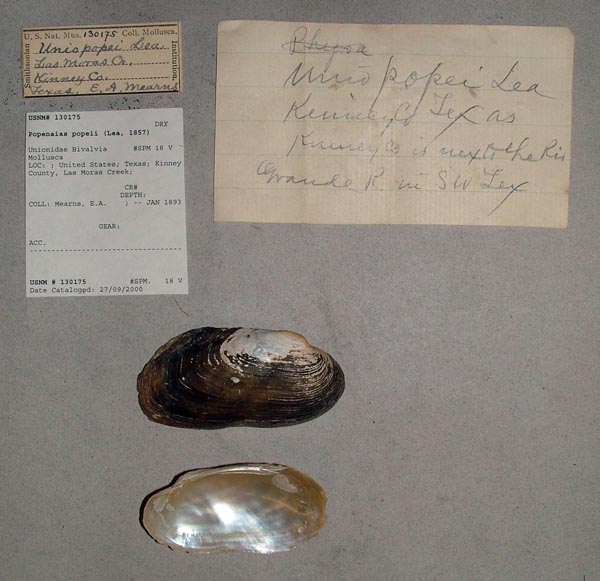 U. S. Nat. Mus. 130175 Coll. Mollusca.
Smithsonian
Institution.
Unio popei Lea.
Las Moras Cr.
Kinney Co.
Texas, E. A. Mearns
USNM# 130175
DRY
Popenaias popeii (Lea, 1857)
Unionidae Bivalvia #SPM 18 V
Mollusca
LOC: ; United States; Texas; Kinney
County, Las Moras Creek;
CR#
DEPTH:
COLL: Mearns, E.A. ; -- JAN 1893
GEAR:
ACC.
USNM # 130175 #SPM. 18 V
Date Cataloged: 27/09/2000
Physa
Unio popei Lea
Kinney Co Texas
Kinney Co is next to the Rio
Grande R. in SW Tex